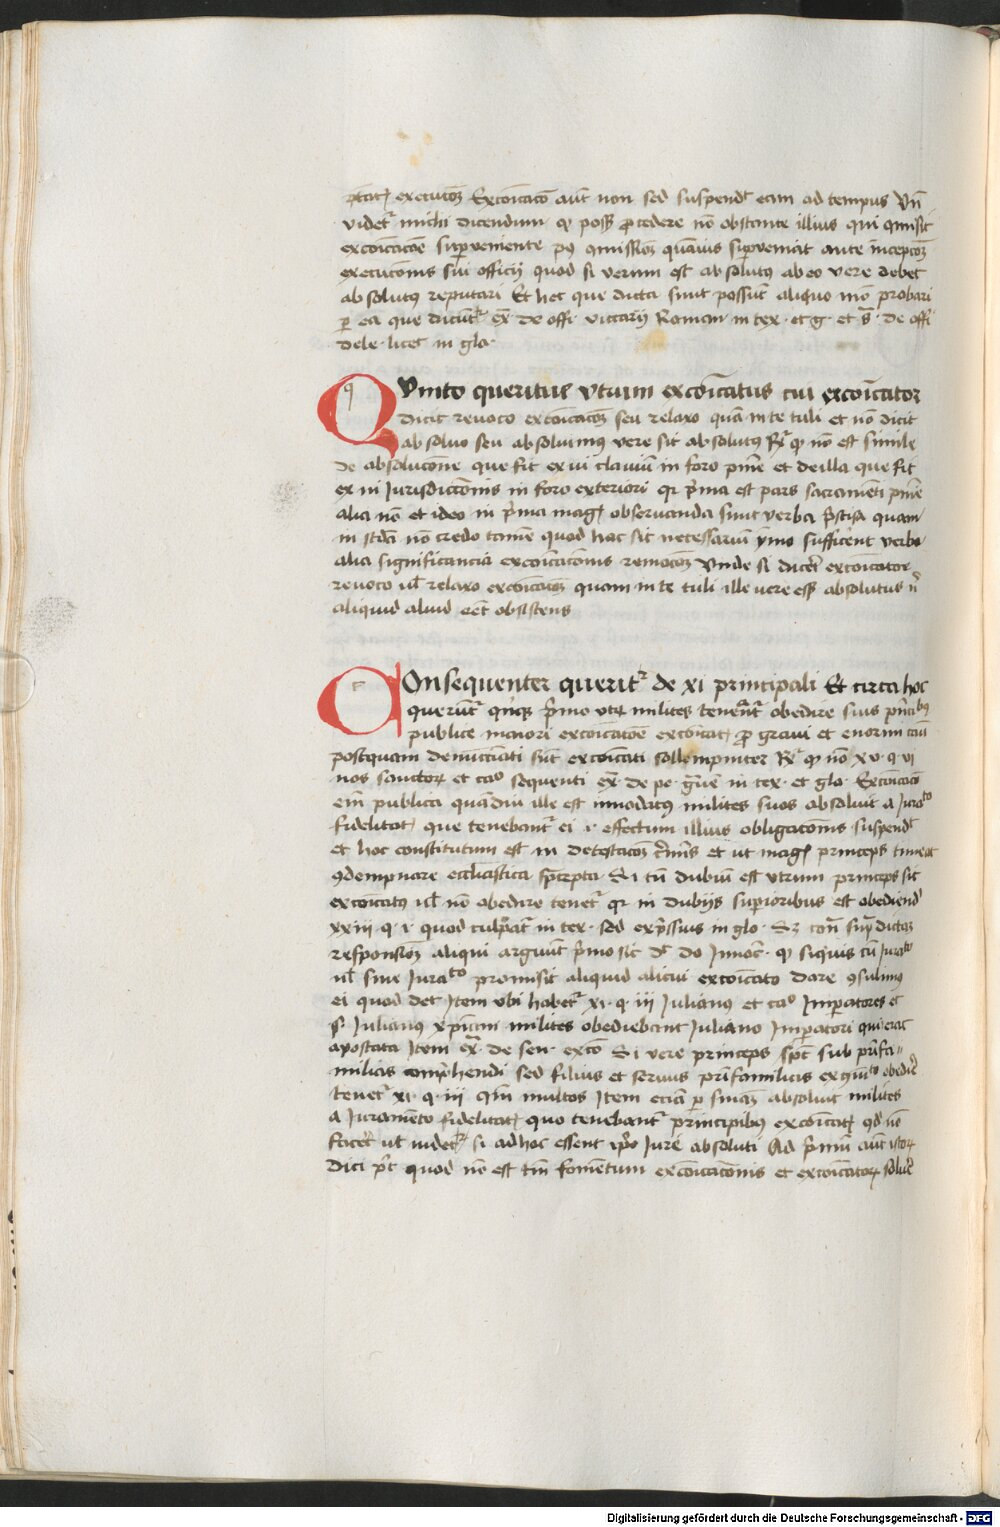 executoẽ Excoĩcaco aut̃ non sed suspendt eam ad tempus Vñ
videtr michi dicendum qp poss procedere nõ obstante illius qui cõmisit
excoĩcacoẽ superveniente pq cõmissioẽ quãuis superveniat ante incepcoẽ
execuconis sui officij quod si verum est absolutq ab eo vere debet
absolutq reputari Et hec que dicta sunt possũt aliquo mõ probari
per ea que dicũtr ex̃· de offi· vicarij Roman in tex· et g· et s̃· de offi
dele· licet in glo·
QVinto queritur vtrum excõicatus cui excõicator
dicit revoco excoĩcacoẽ seu relaxo quã in te tuli et nõ dicit
absoluo seu absoluimq vere sit absolutq Rr qp nõ est simile
de absolucone que fit ex vi clauiũ in foro pnĩe et de illa que fit
ex vi Iurisdicconis in foro exteriori qr prima est pars sacramẽti pnĩe
alia nõ et ideo in prima magis observanda sunt verba prescisa quam
in scda nõ credo tamẽ quod hoc sit necessariũ ymo sufficerent verba
alia significancia excoĩcaconis remocoẽ Vnde si dicerer excoĩcator
revoco ul relaxo excoĩcacoẽ quam in te tuli ille vere esset absolutus nr
aliquid aliud eẽt obsistens
COnsequenter queritr de xi principali Et circa hoc
querunt quinqz primo vtrum milites tenentr obedire suis principibq
publice maiori excoĩcacoẽ excoĩcatis pro gravi et enormi cãu
postquam denũcciati sũt excoĩcati sollempniter Rr qp nõ xv· q vi
nos sanctorum et cao sequenti ex̃· de pe· g̃vẽ in tex· et glo· Excoĩcaco
em̃ publica quãdiu ille est inuodatus milites suos absoluit a Iurato
fidelitatis que tenebantr ei i· effectum illius obligaconis suspendt
et hoc constitutum est in detestacoẽ crimĩs et ut magis princeps timeat
9dempnare ecclesiastica precepta Si tñ dubiũ est vtrum princeps sit
excoĩcatq ul nõ obedire tenetr qr in dubijs superioribus est obediendũ
xxiij· q· i· quod culpatr in tex· sed expressius in glo· Sz contra supradictam
responsioẽ aliqui arguũt primo sic dt do Innoc· qp siquis cũ Iurato
ul sine Iurato promisit aliquid alicui excoĩcato dare 9sulimq
ei quod det Item vbi habetr xi· q· iij Iulianq et cao Imperatores et
s· Iulianq xpĩani milites obediebant Iuliano Imperatori qui erat
apostata Item ex̃· de sen· excõ Si vere princeps sp̃t sub prĩsfa-
milias comprehendi sed filius et servus prĩsfamilias excõiato obedire
tenetr xi· q· iij qm̃ multos Item eciã per sentẽciã absoluit milites
a Iuramẽto fidelitatis quo tenebantr principibq excoĩcatis qd nõ
faceret ul videtr si ad hoc essent ipso Iure absoluti Ad primũ aũt istorum
dici pt̃ quod nõ est tm̃ fomẽtum excõicaconis et excoĩcatorum soluere